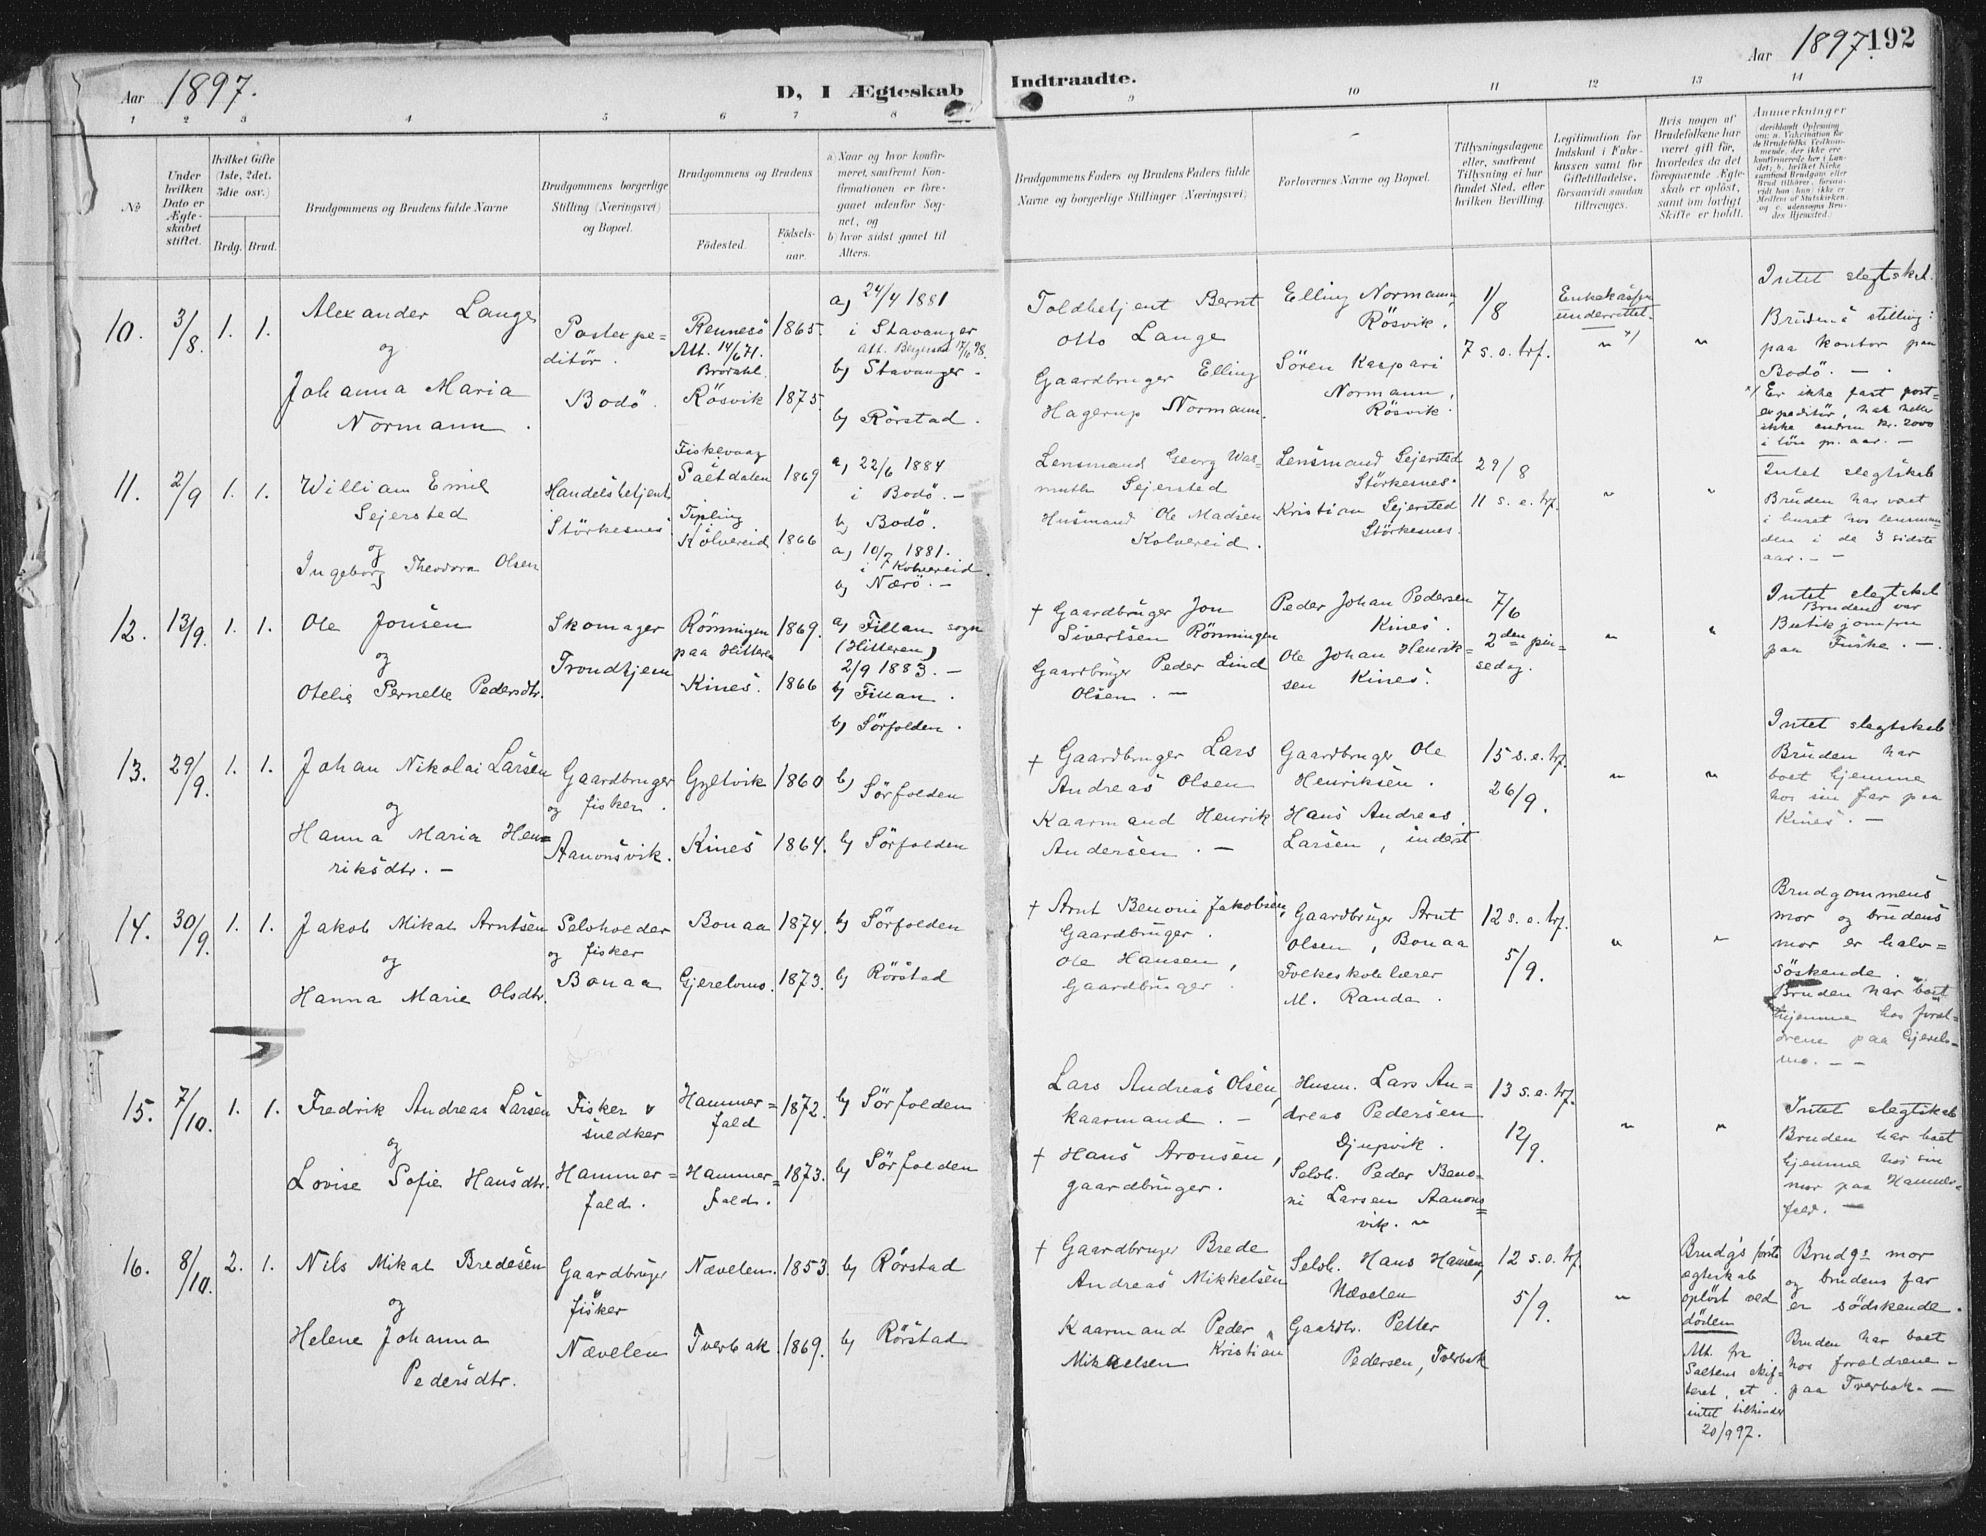 Aar 1897.
D, I Ægteskab
Indtraadte.
Aar 1897. 192
1 2 3 4 5 6 7 8 9 10 11 12 13 14
No.
Under hvilken Dato er Ægteskabet stiftet.
Hvilket Gifte (1ste, 2det, 3die osv.)
Brdg. Brud.
Brudgommens og Brudens fulde Navne
Brudgommens borgerlige Stilling (Næringsvei) og Bopæl.
Brudgommens og Brudens
Födested. Födselsaar.
a) Naar og hvor konfirmeret, saafremt Konfirmationen er foregaaet udenfor Sognet, og
b) hvor sidst gaaet til Alters.
Brudgommens Faders og Brudens Faders fulde Navne og borgerlige Stillinger (Næringsvei)
Forlovernes Navne og Bopæl.
Tillysningsdagene eller, saafremt Tillysning ei har fundet Sted, efter hvilken Bevilling.
Legitimation for Indskud i Enkekassen samt for Giftetilladelse, forsaavidt saadan tiltrænges.
Hvis nogen af Brudefolkene har været gift för, hvorledes da det foregaaende Ægteskab er oplöst, samt om lovligt Skifte er holdt.
Anmerkninger
10. 3/8. 1. 1.
Alexander Lange
og
Johanna Maria
Normann.
Postexpe=
ditör.
Bodö.
Rennesö 1865.
Att. 14/6 71.
Rösvik 1875.
a) 24/4 1881
i Stavanger
b) Stavanger.
b) Rörstad.
Toldbetjent Bernt
Otto Lange
Gaardbruger Elling
Hagerup Normann.
Elling Normann
Rösvik.
Sören Kaspari
Normann,
Rösvik.
1/8
7 s. e. trf.
Enkekassen
underrettet.
Intet slegtskab.
Brudens stilling:
paa kontor paa
Bodö. —
x) Er ikke fast post=
expeditör, har heller
ikke endnu kr. 2000
i lön pr. aar. —
11. 2/9 1. 1.
William Emil
Sejersted
og
Ingeborg Theodora Olsen
Handelsbetjent
Störkesnes
Fiskevaag
Saltdalen 1869
Kolvereid 1866
a) 22/6 1884
i Bodö. —
b) Bodö.
a) 10/7 1881.
i Kolvereid.
b) Nærö. —
Lensmand Georg Was=
muth Sejersted
Husmand Ole Madsen
Kolvereid.
Lensmand Sejersted
Störkesnes.
Kristian Sejersted
Störkesnes.
29/8
11 s. e. trf.
Intet slegtskab
Bruden har været
i huset hos lensman=
den i de 3 sidste
aar. —
12. 13/9. 1. 1.
Ole Jonsen
og
Otelie Pernelle Pedersdtr.
Skomager
Trondhjem
Rönningen 1869.
paa Hitteren
Kines. 1866
a) Fillan sogn
(Hitteren)
2/9 1883. —
b) Fillan.
b) Sörfolden.
† Gaardbruger Jon
Sivertsen Rönningen
Gaardbruger Peder Lind
Olsen. —
Peder Johan Pedersen
Kines.
Ole Johan Henrik=
sen Kines.
7/6
2den pin=
sedag.
Intet slegtskab
Bruden var
Butikjomfru
paa Fuske. —
13. 29/9. 1. 1.
Johan Nikolai Larsen
og
Hanna Maria Hen=
riksdtr. —
Gaardbruger
og fisker.
Aanonsvik.
Gyltvik 1860
Kines 1864.
b) Sörfolden
b) Sörfolden
† Gaardbruger Lars
Andreas Olsen
Kaarmand Henrik
Andersen. —
Gaardbruger Ole
Henriksen.
Hans Andreas
Larsen, inderst
15 s. e. trf.
26/9.
Intet slegtskab
Bruden har
boet hjemme
hos sin far paa
Kines. —
14. 30/9. 1. 1.
Jakob Mikal Arntsen
og
Hanna Marie Olsdtr.
Selvholder
og fisker
Bonaa
Bonaa 1874.
Gjerelvmo. 1873.
b) Sörfolden
b) Rörstad
† Arnt Benoni Jakobsen,
Gaardbruger.
Ole Hansen,
Gaardbruger.
Gaardbruger Arnt
Olsen, Bonaa
Folkeskolelærer
M. Randa.
12 s. e. trf.
5/9.
Brudgommens
mor og brudens
mor er halv=
söskende.
Bruden har boet
hjemme hos foræl=
drene paa Gjerelv=
mo. —
15. 7/10. 1. 1.
Fredrik Andreas Larsen
og
Lovise Sofie Hansdtr.
Fisker &
snedker
Hammer=
fald.
Hammer= 1872.
fald
Hammer= 1873.
fald.
b) Sörfolden
b) Sörfolden
Lars Andreas Olsen,
kaarmand. —
† Hans Aronsen,
gaardbruger.
Husm. Lars An=
dreas Pedersen
Djupvik.
Selvh. Peder Beno=
ni Larsen Aanons=
vik.
13 s. e. trf.
12/9.
Intet slegtskab
Bruden har boet
hjemme hos sin
mor paa Hammer=
fald. —
16. 8/10. 2. 1.
Nils Mikal Bredesen
og
Helene Johanna
Pedersdtr.
Gaardbruger
& fisker
Nævelen
Nævelen. 1853.
Tverbak. 1869.
b) Rörstad
b) Rörstad
† Gaardbruger Brede
Andreas Mikkelsen
Kaarmand Peder
Kristian
Mikkelsen
Selvh. Hans Hansen,
Nævelen
Gaardbr. Petter
Pedersen, Tverbak
12 s. e. trf.
5/9.
Brudg's förste
ægteskab
oplöst ved
döden
Att. fra
Saltens skif=
teret, at
intet tilhinder
20/9 97.
Brudgs mor
og brudens far
er södskende.
Bruden har boet
hos forældrene
paa Tverbak. —